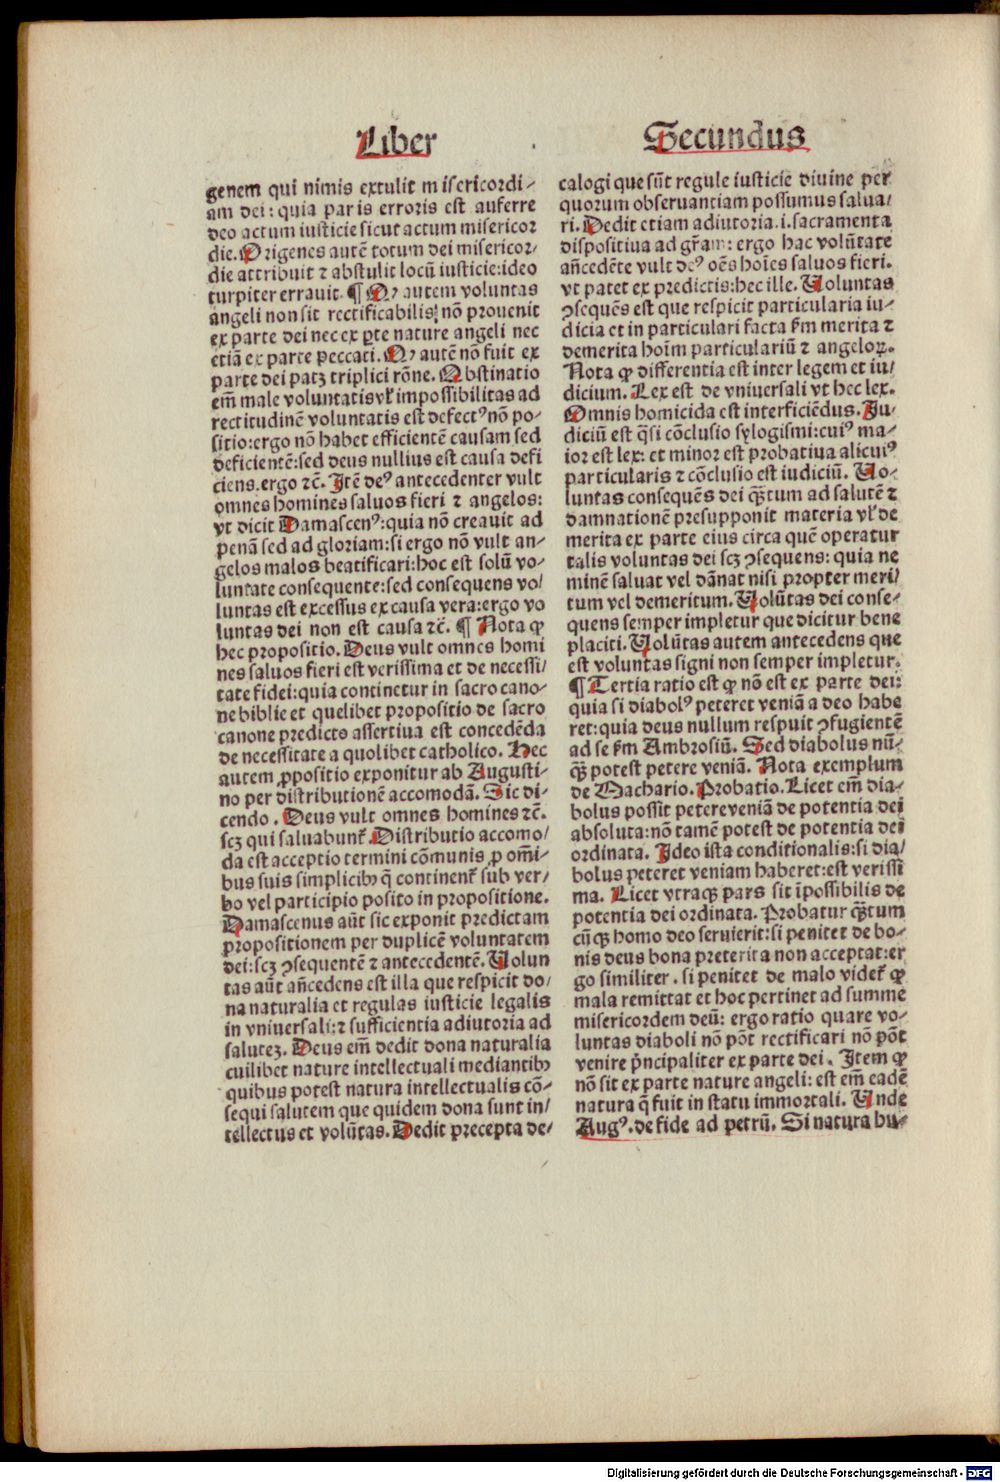 Liber Secundus
genem qui nimis extulit misericordi⸗
am dei: quia par is erroris est auferre
deo actum iusticie sicut actum misericor
die. Origenes autē totum dei misericor⸗
die attribuit ⁊ abstulit locū iusticie: ideo
turpiter errauit. ¶ Qꝫ autem voluntas
angeli non sit rectificabilis: nō prouenit
ex parte dei nec ex ꝑte nature angeli nec
etiā ex parte peccati. Qꝫ autē nō fuit ex
parte dei patꝫ triplici rōne. Obstinatio
em̄ male voluntatis vł impossibilitas ad
rectitudinē voluntatis est defectꝰ nō po⸗
sitio: ergo nō habet efficientē causam sed
deficientē: sed deus nullius est causa defi
ciens. ergo ⁊c̄. Itē deꝰ antecedenter vult
omnes homines saluos fieri ⁊ angelos:
vt dicit Damascenꝰ: quia nō creauit ad
penā sed ad gloriam: si ergo nō vult an⸗
gelos malos beatificari: hoc est solū vo⸗
luntate consequente: sed consequens vo⸗
luntas est excessus ex causa vera: ergo vo
luntas dei non est causa ⁊c̄. ¶ Nota ꝙ
hec propositio. Deus vult omnes homi
nes saluos fieri est verissima et de necessi⸗
tate fidei: quia continetur in sacro cano⸗
ne biblie et quelibet propositio de sacro
canone predicto assertiua est concedēda
de necessitate a quolibet catholico. Hec
autem ꝓpositio exponitur ab Augusti⸗
no per distributionē accomodā. Sic di⸗
cendo. Deus vult omnes homines ⁊c̄.
scꝫ qui saluabunt̄. Distributio accomo⸗
da est acceptio termini cōmunis ꝓ om̄i⸗
bus suis simplicibꝫ q̄ continent̄ sub ver⸗
bo vel participio posito in propositione.
Damascenus aūt sic exponit predictam
propositionem per duplicē voluntatem
dei: scꝫ ꝯsequentē ⁊ antecedentē. Volun
tas aūt an̄cedens est illa que respicit do⸗
na naturalia et regulas iusticie legalis
in vniuersali: ⁊ sufficientia adiutoria ad
salutez. Deus em̄ dedit dona naturalia
cuilibet nature intellectuali mediantibꝫ
quibus potest natura intellectualis cō⸗
sequi salutem que quidem dona sunt in⸗
tellectus et volūtas. Dedit precepta de⸗
calogi que sūt regule iusticie diuine per
quorum obseruantiam possumus salua⸗
ri. Dedit etiam adiutoria .i. sacramenta
dispositiua ad gr̄am: ergo hac volūtate
an̄cedēte vult deꝰ oēs hoīes saluos fieri.
vt patet ex predictis: hec ille. Voluntas
ꝯsequēs est que respicit particularia iu⸗
dicia et in particulari facta s̄m merita ⁊
demerita hoīm particulariū ⁊ angeloꝝ.
Nota ꝙ differentia est inter legem et iu⸗
dicium. Lex est de vniuersali vt hec lex.
Omnis homicida est interficiēdus. Iu⸗
diciū est q̄si cōclusio sylogismi: cuiꝰ ma⸗
ior est lex: et minor est probatiua alicuiꝰ
particularis ⁊ cōclusio est iudiciū. Vo⸗
luntas consequēs dei q̄ꝫtum ad salutē ⁊
damnationē presupponit materia vł de
merita ex parte eius circa quē operatur
talis voluntas dei scꝫ ꝯsequens: quia ne
minē saluat vel dānat nisi propter meri⸗
tum vel demeritum. Volūtas dei conse⸗
quens semper impletur que dicitur bene
placiti. Volūtas autem antecedens que
est voluntas signi non semper impletur.
¶ Tertia ratio est ꝙ nō est ex parte dei:
quia si diabolꝰ peteret veniā a deo habe
ret: quia deus nullum respuit ꝯfugientē
ad se s̄m Ambrosiū. Sed diabolus nū⸗
q̄ꝫ potest petere veniā. Nota exemplum
de Machario. Probatio. Licet em̄ dia⸗
bolus possit petere veniā de potentia dei
absoluta: nō tamē potest de potentia dei
ordinata. Ideo ista conditionalis: si dia⸗
bolus peteret veniam haberet: est verissi
ma. Licet vtraqꝫ pars sit īpossibilis de
potentia dei ordinata. Probatur q̄ꝫtum
cūqꝫ homo deo seruierit: si penitet de bo⸗
nis deus bona preterita non acceptat: er
go similiter. si penitet de malo videt̄ ꝙ
mala remittat et hoc pertinet ad summe
misericordem deū: ergo ratio quare vo⸗
luntas diaboli nō pōt rectificari nō pōt
venire p̄ncipaliter ex parte dei. Item ꝙ
nō sit ex parte nature angeli: est em̄ eadē
natura q̄ fuit in statu immortali. Unde
Augꝰ. de fide ad petrū. Si natura hu⸗
Digitalisierung gefördert durch die Deutsche Forschungsgemeinschaft - DFG